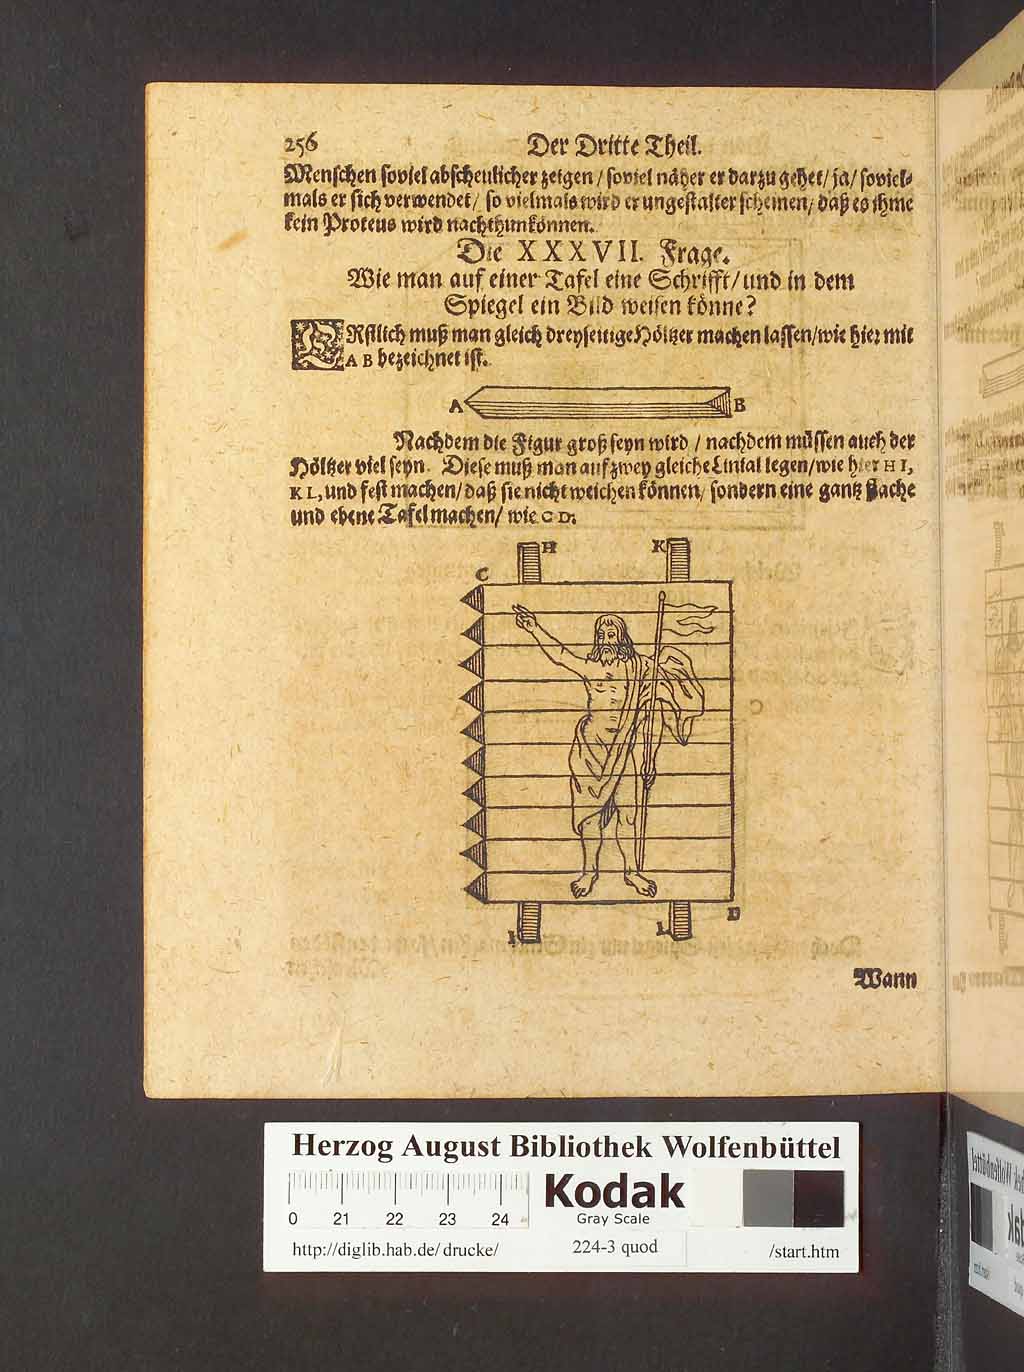 256 Der Dritte Theil.
Menschen soviel abscheulicher zeigen / soviel näher er darzu gehet / ja / soviel-
mals er sich verwendet / so vielmals wird er ungestalter scheinen / daß es ihme
kein Proteus wird nachthun können.
Die XXXVII. Frage.
Wie man auf einer Tafel eine Schrifft / und in dem
Spiegel ein Bild weisen könne?
ERstlich muß man gleich dreyseitige Höltzer machen lassen / wie hier mit
A B bezeichnet ist.
A B
Nachdem die Figur groß seyn wird / nachdem müssen auch der
Höltzer viel seyn. Diese muß man auf zwey gleiche Linial legen / wie hier H I,
K L, und fest machen / daß sie nicht weichen können / sondern eine gantz flache
und ebene Tafel machen / wie C D.
H K
C
D
I L
Wann
Herzog August Bibliothek Wolfenbüttel
0 21 22 23 24
Kodak
Gray Scale
http://diglib.hab.de/drucke/ 224-3 quod /start.htm